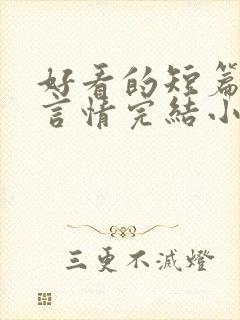 好看的短篇
言情完結小
三更不滅燈